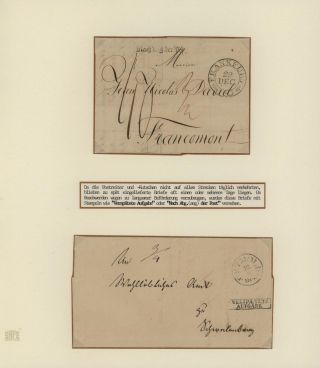 Nach Abg. d. Post
FRANKFURT
22
DEC
Monsieur
Jean Nicolas David
Francomont
Da die Postreiter und -kutschen nicht auf allen Strecken täglich verkehrten,
blieben zu spät eingelieferte Briefe oft einen oder mehrere Tage liegen. Um
Beschwerden wegen zu langsamer Beförderung vorzubeugen, wurden diese Briefe mit
Stempeln wie "Verspätete Aufgabe" oder "Nach Abg.(ang) der Post" versehen.
An
3/4
Wohllöbliches Amt
zu
VERSPÄTETE
AUFGABE